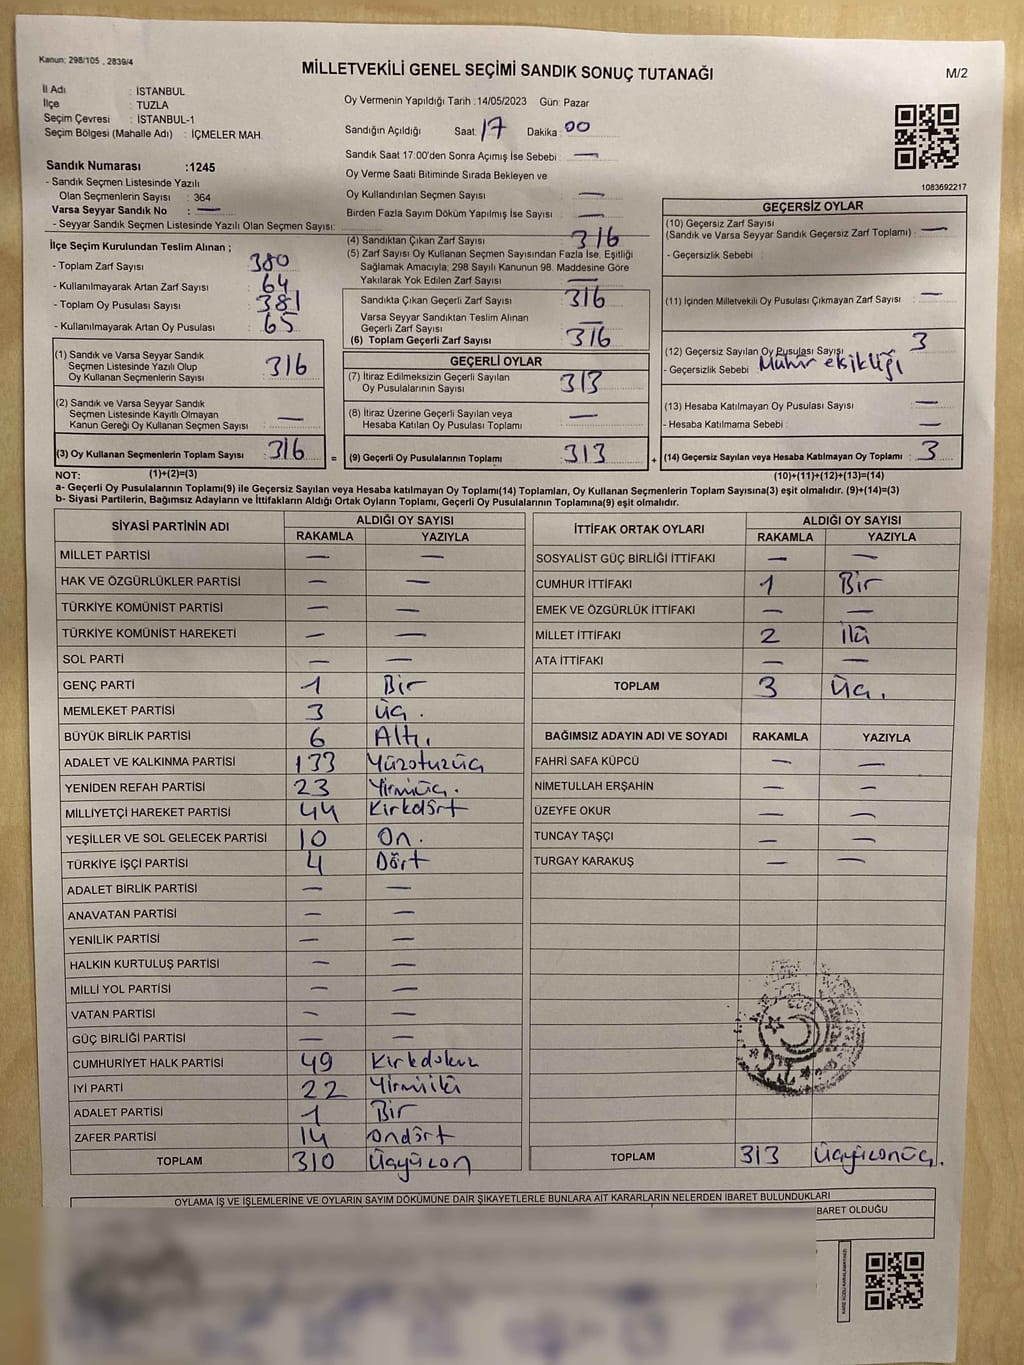 Kanun: 298/105 , 2839/4
MİLLETVEKİLİ GENEL SEÇİMİ SANDIK SONUÇ TUTANAĞI
M/2
İl Adı : İSTANBUL
İlçe : TUZLA
Seçim Çevresi : İSTANBUL-1
Seçim Bölgesi (Mahalle Adı) : İÇMELER MAH.
Sandık Numarası :1245
- Sandık Seçmen Listesinde Yazılı
Olan Seçmenlerin Sayısı : 364
Varsa Seyyar Sandık No : —
- Seyyar Sandık Seçmen Listesinde Yazılı Olan Seçmen Sayısı:
Oy Vermenin Yapıldığı Tarih :14/05/2023 Gün: Pazar
Sandığın Açıldığı Saat: 17 Dakika: 00
Sandık Saat 17:00'den Sonra Açımış İse Sebebi : —
Oy Verme Saati Bitiminde Sırada Bekleyen ve
Oy Kullandırılan Seçmen Sayısı : —
Birden Fazla Sayım Döküm Yapılmış İse Sayısı : —
1083692217
İlçe Seçim Kurulundan Teslim Alınan ;
- Toplam Zarf Sayısı : 380
- Kullanılmayarak Artan Zarf Sayısı : 64
- Toplam Oy Pusulası Sayısı : 381
- Kullanılmayarak Artan Oy Pusulası : 65
(1) Sandık ve Varsa Seyyar Sandık
Seçmen Listesinde Yazılı Olup
Oy Kullanan Seçmenlerin Sayısı : 316
(2) Sandık ve Varsa Seyyar Sandık
Seçmen Listesinde Kayıtlı Olmayan
Kanun Gereği Oy Kullanan Seçmen Sayısı : —
(3) Oy Kullanan Seçmenlerin Toplam Sayısı : 316
(4) Sandıktan Çıkan Zarf Sayısı : 316
(5) Zarf Sayısı Oy Kullanan Seçmen Sayısından Fazla İse, Eşitliği
Sağlamak Amacıyla, 298 Sayılı Kanunun 98. Maddesine Göre
Yakılarak Yok Edilen Zarf Sayısı : —
Sandıkta Çıkan Geçerli Zarf Sayısı : 316
Varsa Seyyar Sandıktan Teslim Alınan
Geçerli Zarf Sayısı : —
(6) Toplam Geçerli Zarf Sayısı : 316
GEÇERLİ OYLAR
(7) İtiraz Edilmeksizin Geçerli Sayılan
Oy Pusulalarının Sayısı : 313
(8) İtiraz Üzerine Geçerli Sayılan veya
Hesaba Katılan Oy Pusulası Toplamı : —
= (9) Geçerli Oy Pusulalarının Toplamı : 313
GEÇERSİZ OYLAR
(10) Geçersiz Zarf Sayısı
(Sandık ve Varsa Seyyar Sandık Geçersiz Zarf Toplamı) : —
- Geçersizlik Sebebi :
(11) İçinden Milletvekili Oy Pusulası Çıkmayan Zarf Sayısı : —
(12) Geçersiz Sayılan Oy Pusulası Sayısı : 3
- Geçersizlik Sebebi : Mühür eksikliği
(13) Hesaba Katılmayan Oy Pusulası Sayısı : —
- Hesaba Katılmama Sebebi : —
+ (14) Geçersiz Sayılan veya Hesaba Katılmayan Oy Toplamı : 3
NOT: (1)+(2)=(3) (10)+(11)+(12)+(13)=(14)
a- Geçerli Oy Pusulalarının Toplamı(9) ile Geçersiz Sayılan veya Hesaba katılmayan Oy Toplamı(14) Toplamları, Oy Kullanan Seçmenlerin Toplam Sayısına(3) eşit olmalıdır. (9)+(14)=(3)
b- Siyasi Partilerin, Bağımsız Adayların ve İttifakların Aldığı Ortak Oyların Toplamı, Geçerli Oy Pusulalarının Toplamına(9) eşit olmalıdır.
SİYASİ PARTİNİN ADI ALDIĞI OY SAYISI
RAKAMLA YAZIYLA
MİLLET PARTİSİ — —
HAK VE ÖZGÜRLÜKLER PARTİSİ — —
TÜRKİYE KOMÜNİST PARTİSİ — —
TÜRKİYE KOMÜNİST HAREKETİ — —
SOL PARTİ — —
GENÇ PARTİ 1 Bir
MEMLEKET PARTİSİ 3 üç.
BÜYÜK BİRLİK PARTİSİ 6 Altı.
ADALET VE KALKINMA PARTİSİ 133 Yüzotuzüç
YENİDEN REFAH PARTİSİ 23 Yirmiüç.
MİLLİYETÇİ HAREKET PARTİSİ 44 Kırkdört
YEŞİLLER VE SOL GELECEK PARTİSİ 10 On.
TÜRKİYE İŞÇİ PARTİSİ 4 Dört
ADALET BİRLİK PARTİSİ — —
ANAVATAN PARTİSİ — —
YENİLİK PARTİSİ — —
HALKIN KURTULUŞ PARTİSİ — —
MİLLİ YOL PARTİSİ — —
VATAN PARTİSİ — —
GÜÇ BİRLİĞİ PARTİSİ — —
CUMHURİYET HALK PARTİSİ 49 Kırkdokuz
İYİ PARTİ 22 Yirmiiki
ADALET PARTİSİ 1 Bir
ZAFER PARTİSİ 14 Ondört
TOPLAM 310 Üçyüzon
İTTİFAK ORTAK OYLARI ALDIĞI OY SAYISI
RAKAMLA YAZIYLA
SOSYALİST GÜÇ BİRLİĞİ İTTİFAKI — —
CUMHUR İTTİFAKI 1 Bir
EMEK VE ÖZGÜRLÜK İTTİFAKI — —
MİLLET İTTİFAKI 2 İki
ATA İTTİFAKI — —
TOPLAM 3 Üç.
BAĞIMSIZ ADAYIN ADI VE SOYADI RAKAMLA YAZIYLA
FAHRİ SAFA KÜPCÜ — —
NİMETULLAH ERŞAHİN — —
ÜZEYFE OKUR — —
TUNCAY TAŞÇI — —
TURGAY KARAKUŞ — —
TOPLAM 313 Üçyüzonüç.
OYLAMA İŞ VE İŞLEMLERİNE VE OYLARIN SAYIM DÖKÜMÜNE DAİR ŞİKAYETLERLE BUNLARA AİT KARARLARIN NELERDEN İBARET BULUNDUKLARI
BARET OLDUĞU